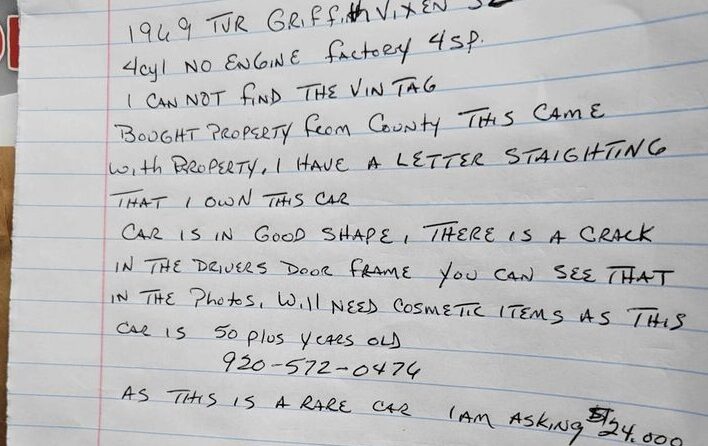 1969 TVR GRiffith VIXEN S2
4cyl NO ENGINE factory 4sp.
I CAN NOT find THE VIN TAG
BOUGHT PROPERTY from COUNTY THIS CAME
With PROPERTY, I HAVE A LETTER STAIGHTING
THAT I OWN THIS CAR
CAR IS IN GOOD SHAPE, THERE IS A CRACK
IN THE DRIVERS DOOR FRAME YOU CAN SEE THAT
IN THE Photos, Will NEED COSMETIC ITEMS AS THIS
CAR IS 50 plus years OLD
920-572-0476
AS THIS IS A RARE CAR I AM ASKING $24,000